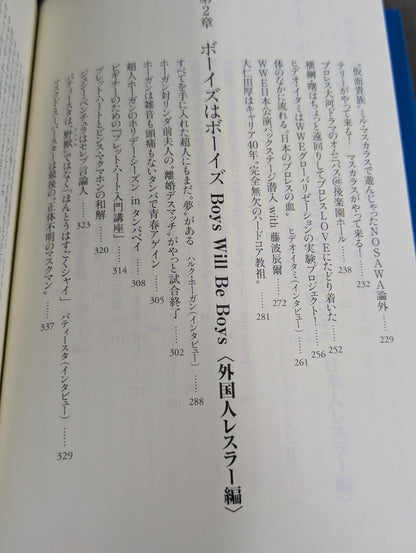 "仮面貴族"ミル・マスカラスで遊んじゃったNOSAWA論外 …… 229
テリーがやって来る！　マスカラスがやって来る！ …… 232
プロレス大河ドラマのオムニバス@後楽園ホール …… 238
横綱・曙はちょっと遠回りしてプロレスLOVEにたどり着いた …… 252
ヒデオ・イタミはWWEグローバリゼーションの実験プロジェクト！ …… 256
体のなかに流れる"日本のプロレスの血"　ヒデオ・イタミ〈インタビュー〉 …… 261
WWE日本公演バックステージ潜入 with 藤波辰爾 …… 272
大仁田厚はキャリア40年"完全無欠のハードコア教祖" …… 281
第2章　ボーイズはボーイズ Boys Will Be Boys〈外国人レスラー編〉
すべてを手に入れた超人にもまだ、"夢"がある　ハルク・ホーガン〈インタビュー〉 …… 288
ホーガン対リンダ前夫人の"離婚デスマッチ"がやっと試合終了 …… 302
ホーガンは雑音も頭痛もないタンパで青春アゲイン …… 305
超人ホーガンのホリデーシーズン in タンパベイ …… 308
ビギナーのための「ブレット・ハート入門講座」 …… 314
ブレット・ハートとビンス・マクマホンの和解 …… 320
ジェシー・ベンチュラは史上プロ言論人 …… 323
バティースタは"野獣"ではなく「ほんとうはすごくシャイ」　バティースタ〈インタビュー〉 …… 329
マスクド・スーパースターは最後の"正体不明のマスクマン" …… 337